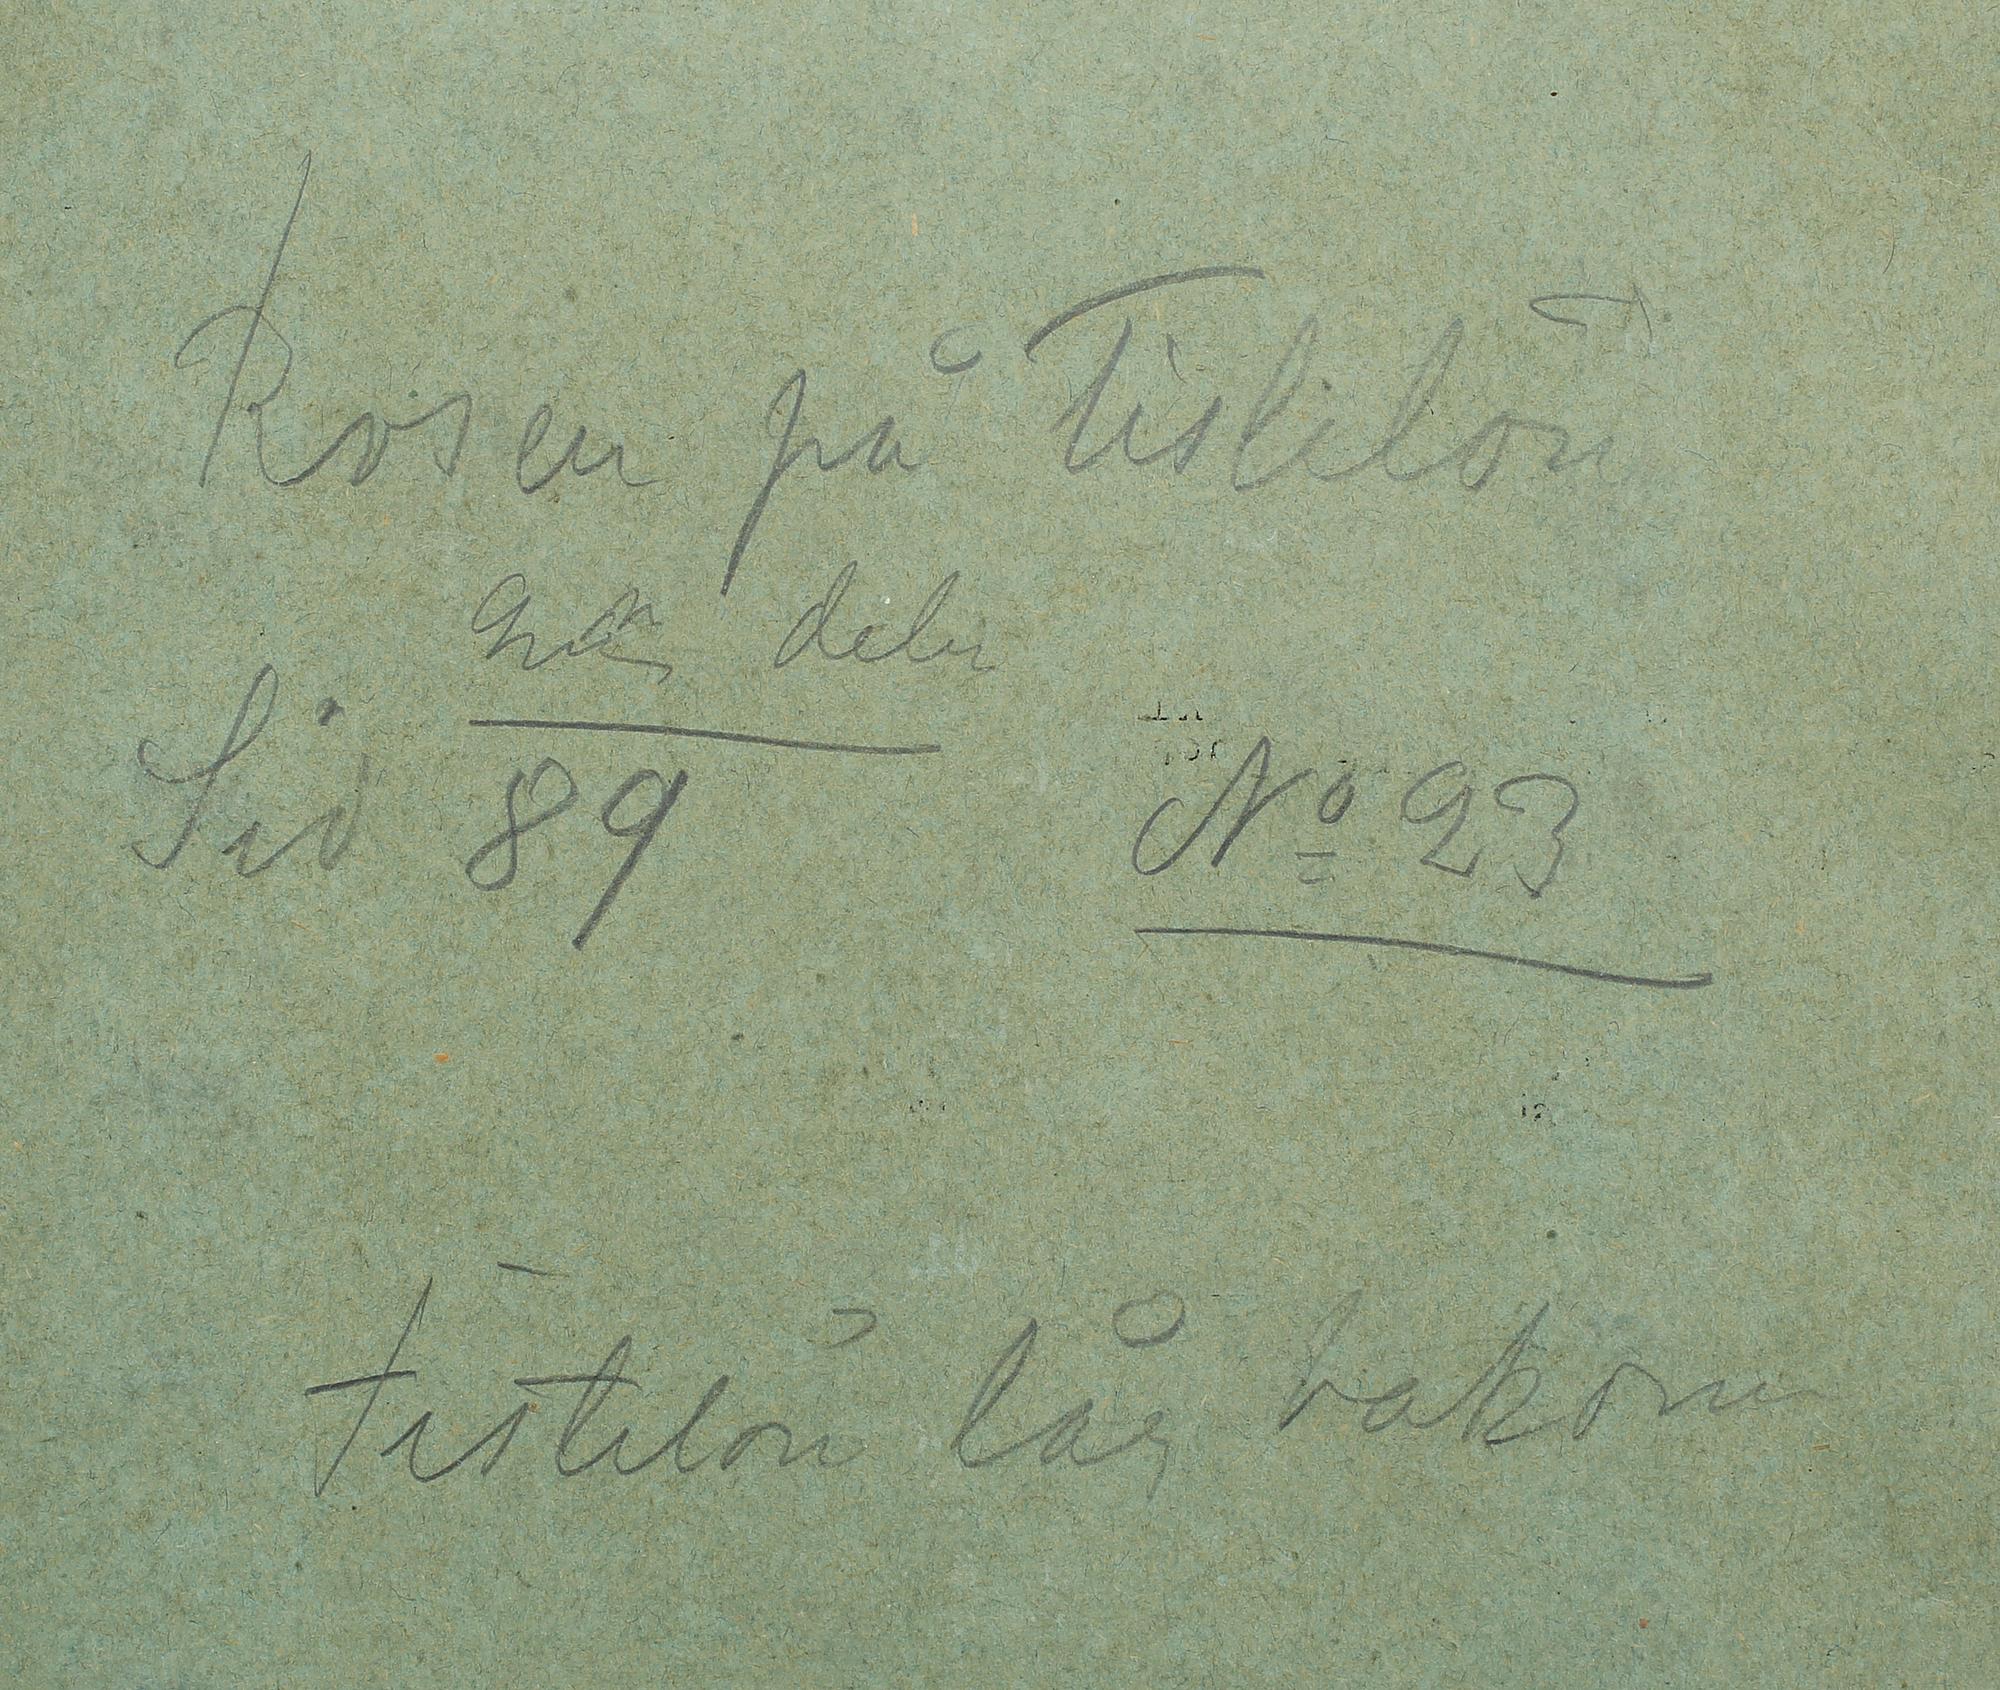 Rosen på Tistelön
Sid 89 No 23
Tistelön låg bakom